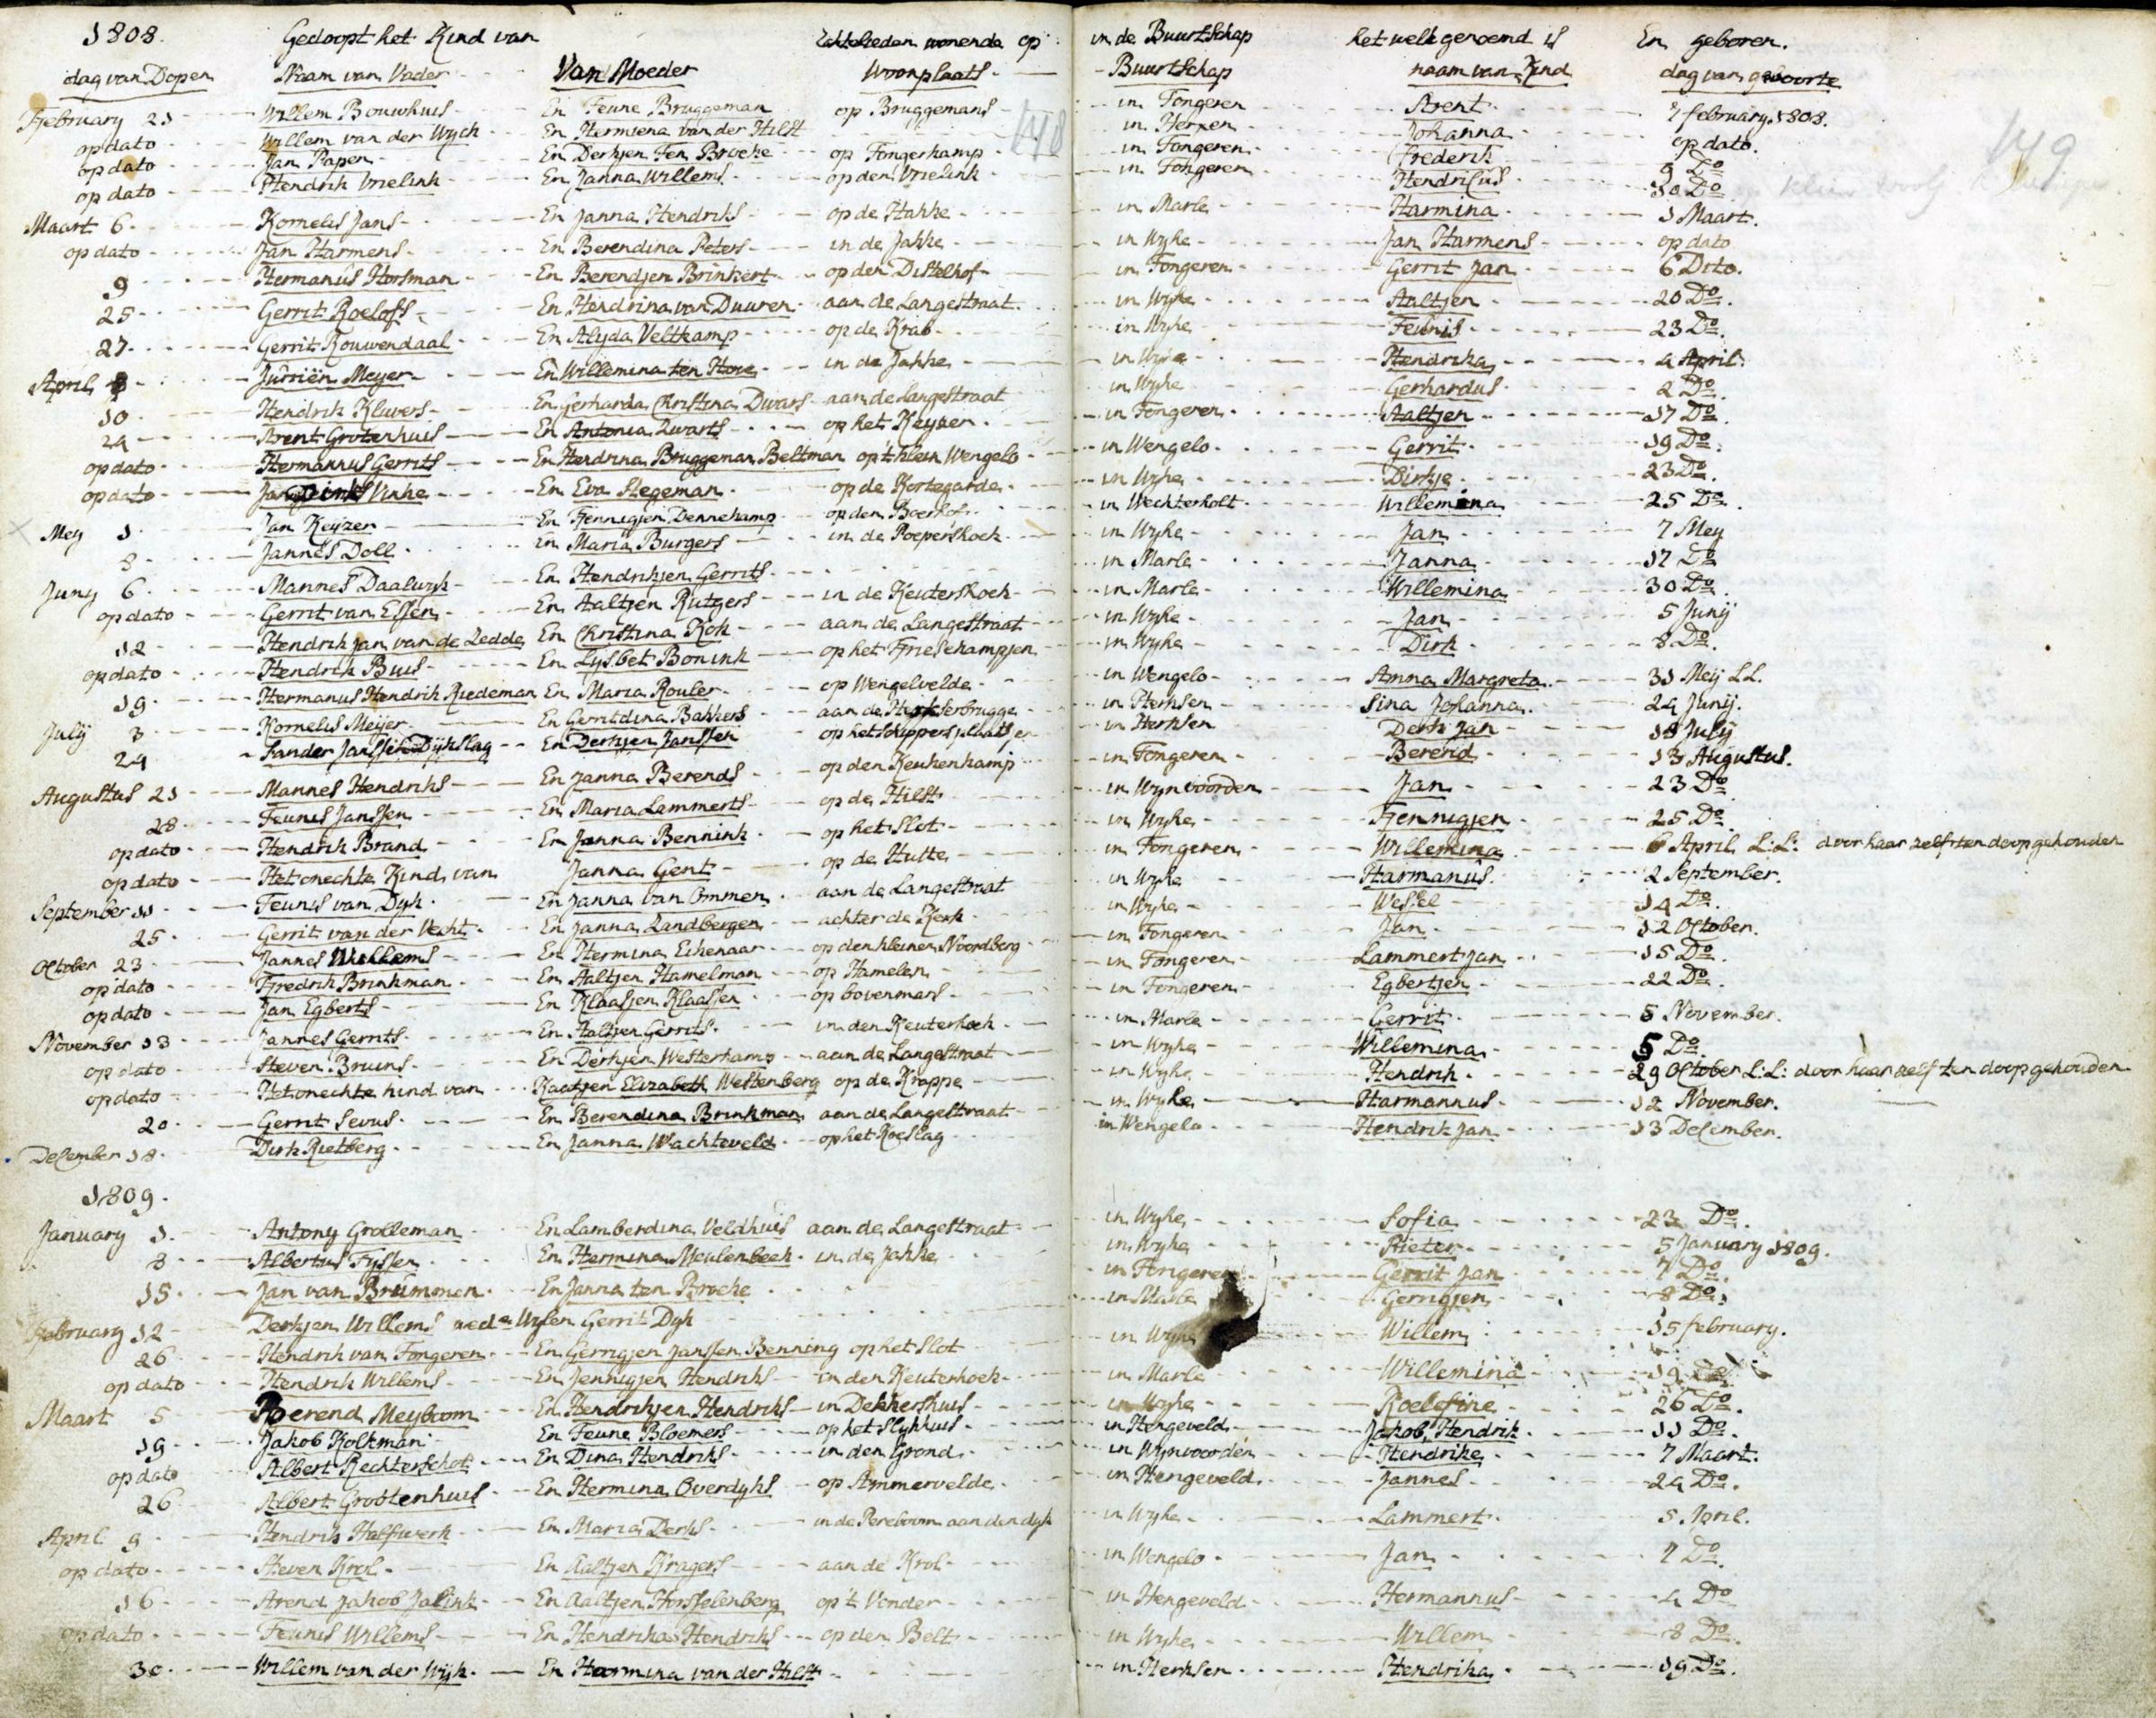 1808. Gedoopt het Kind van Echtelieden wonende op in de Buurtschap het welk genoemd is En geboren.
dag van Dopen Naam van Vader Van Moeder Woonplaats Buurtschap naam van Kind dag van geboorte
February 21 Willem Bouwhuis En Teune Bruggeman op Bruggemans in Tongeren Arent 7 february 1808.
op dato Willem van der Wych En Hermiena van der Hilst in Herxen Johanna op dato.
op dato Jan Papen En Derkjen Ten Broeke op Tongerkamp in Tongeren frederik 9 Do
op dato Hendrik Vrielink En Janna Willems op den Vrielink in Tongeren Hendricus 10 Do
148
149
Maart 6 Kornelis Jans En Janna Hendriks op de Hakke in Marle Harmina 1 Maart.
op dato Jan Harmens En Berendina Peters in de Jakke in Wyhe Jan Harmens op dato
9 Hermanus Horsman En Berendjen Brinkert op den Distelhof in Tongeren Gerrit Jan 6 Dito.
25 Gerrit Roelofs En Hendrina van Duuren aan de Langestraat in Wyhe Aaltjen 20 Do.
27 Gerrit Kouwendaal En Alyda Veltkamp op de Krab in Wyhe Teunis 23 Do.
April 3 Jurriën Meyer En Willemina ten Hove in de Jakke in Wyhe Hendrika 4 April.
10 Hendrik Kluvers En Gerharda Christina Dwars aan de Langestraat in Wyhe Gerhardus 2 Do.
24 Arent Grotenhuis En Antonia Zwarts op het Keyzer in Tongeren Aaltjen 17 Do.
op dato Hermannus Gerrits En Hendrina Bruggeman Beltman op 't klein Wengelo in Wengelo Gerrit 19 Do.
op dato Jan Vinke En Eva Stegeman op de Kortegarde in Wyhe Dirkje 23 Do.
Mey 1 Jan Keyzer En Fennigjen Dennekamp op den Boerhof in Wechterholt Willemina 25 Do.
8 Jannes Doll En Maria Burgers in de Poepershoek in Wyhe Jan 7 Mey
Juny 6 Mannes Daalwyk En Hendrikjen Gerrits in Marle Janna 17 Do
op dato Gerrit van Essen En Aaltjen Rutgers in de Keutershoek in Marle Willemina 30 Do.
12 Hendrik Jan van de Zedde En Christina Kok aan de Langestraat in Wyhe Jan 5 Junij
op dato Hendrik Buis En Lysbet Bonink op het Friesekampjen in Wyhe Dirk 8 Do.
19 Hermanus Hendrik Riedeman En Maria Rouler op Wengelvelde in Wengelo Anna Margreta 31 Meij L.L.
July 3 Kornelis Meijer En Gerritdina Bakkers aan de Herkserbrugge in Herksen Sina Johanna 24 Junij.
24 Sander Janssen Dijkslag En Derkjen Janssen op het schippers plaatsje in Herksen Derk Jan 18 July
Augustus 21 Mannes Hendriks En Janna Berends op den Keukenkamp in Tongeren Berend 13 Augustus.
28 Teunis Janssen En Maria Lammerts op de Hilst in Wynvoorden Jan 23 Do
op dato Hendrik Brand En Janna Bennink op het Slot in Wyhe Fennigjen 25 Do.
op dato Het onechte Kind van Janna Gent op de Hutte in Tongeren Willemina 6 April L:L: door haar zelfs ten doop gehouden
September 11 Teunis van Dyk En Janna van Ommen aan de Langestraat in Wyhe Harmanus 2 September.
25 Gerrit van der Vecht En Janna Zandbergen achter de Kerk in Wyhe Wessel 14 Do.
October 23 Jannes Willems En Hermina Eikenaar op den kleinen Noordberg in Tongeren Jan 12 October.
op dato Fredrik Brinkman En Aaltjen Hamelman op Hamelen in Tongeren Lammert Jan 15 Do.
op dato Jan Egberts En Klaasjen Klaassen op bovenmars in Tongeren Egbertjen 22 Do.
November 13 Jannes Gerrits En Aaltjen Gerrits in den Keuterhoek in Marle Gerrit 5 November.
op dato Steven Bruins En Derkjen Westerkamp aan de Langestraat in Wyhe Willemina 5 Do.
op dato Het onechte kind van Kaatjen Elizabeth Westenberg op de Krappe in Wyhe Hendrik 29 October L:L: door haar zelf ten doop gehouden
20 Gerrit Sevus En Berendina Brinkman aan de Langestraat in Wyhe Harmannus 12 November.
December 18 Dirk Rietberg En Janna Wachteveld op het Roeslag in Wengelo Hendrik Jan 13 December.
1809.
January 1 Antony Grolleman En Lamberdina Veldhuis aan de Langestraat in Wyhe Sofia 23 Do.
8 Albertus Tyssen En Hermina Meulenbeek in de Jakke in Wyhe Pieter 5 January 1809.
15 Jan van Brummen En Janna ten Broeke in Tongeren Gerrit Jan 7 Do.
February 12 Derkjen Willems wede Wylen Gerrit Dyk in Marle Gerrigjen 8 Do.
26 Hendrik van Tongeren En Gerrigjen Janssen Benning op het Slot in Wyhe Willem 15 february.
op dato Hendrik Willems En Jennigjen Hendriks in den Keuterhoek in Marle Willemina 19 Do
Maart 5 Berend Meyboom En Hendrikjen Hendriks in Dekkershuis in Wyhe Roelefine 26 Do.
19 Jakob Kolkman En Teune Bloemers op het Slykhuis in Hengeveld Jakob Hendrik 11 Do.
op dato Albert Rechterschot En Dina Hendriks in den Grond in Wynvoorden Hendrike 7 Maart.
26 Albert Grootenhuis En Hermina Overdyks op Ammervelde in Hengeveld Jannes 24 Do.
April 9 Hendrik Halfwerk En Maria Derks in de Pereboom aan den dyk in Wyhe Lammert 5 April.
op dato Steven Krol En Aaltjen Kragers aan de Krol in Wengelo Jan 7 Do.
16 Arend Jakob Jalink En Aaltjen Horsselenberg op 't Vonder in Hengeveld Hermannus 4 Do
op dato Teunis Willems En Hendrika Hendriks op den Belt in Wyhe Willem 8 Do.
30 Willem van der Wijk En Harmina van der Hilst in Herksen Hendrika 19 Do.